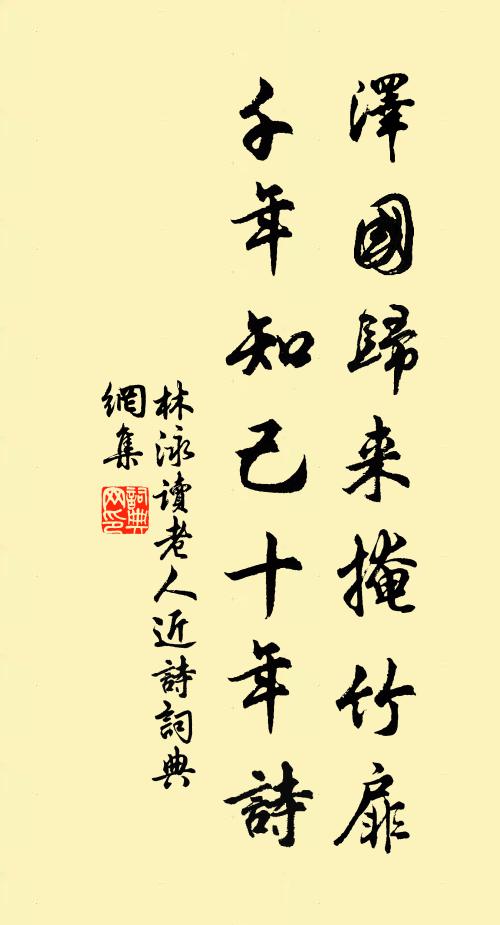 澤國歸来掩竹扉
千年知己十年詩
林泳讀老人近詩詞典
網集
詞典
网印